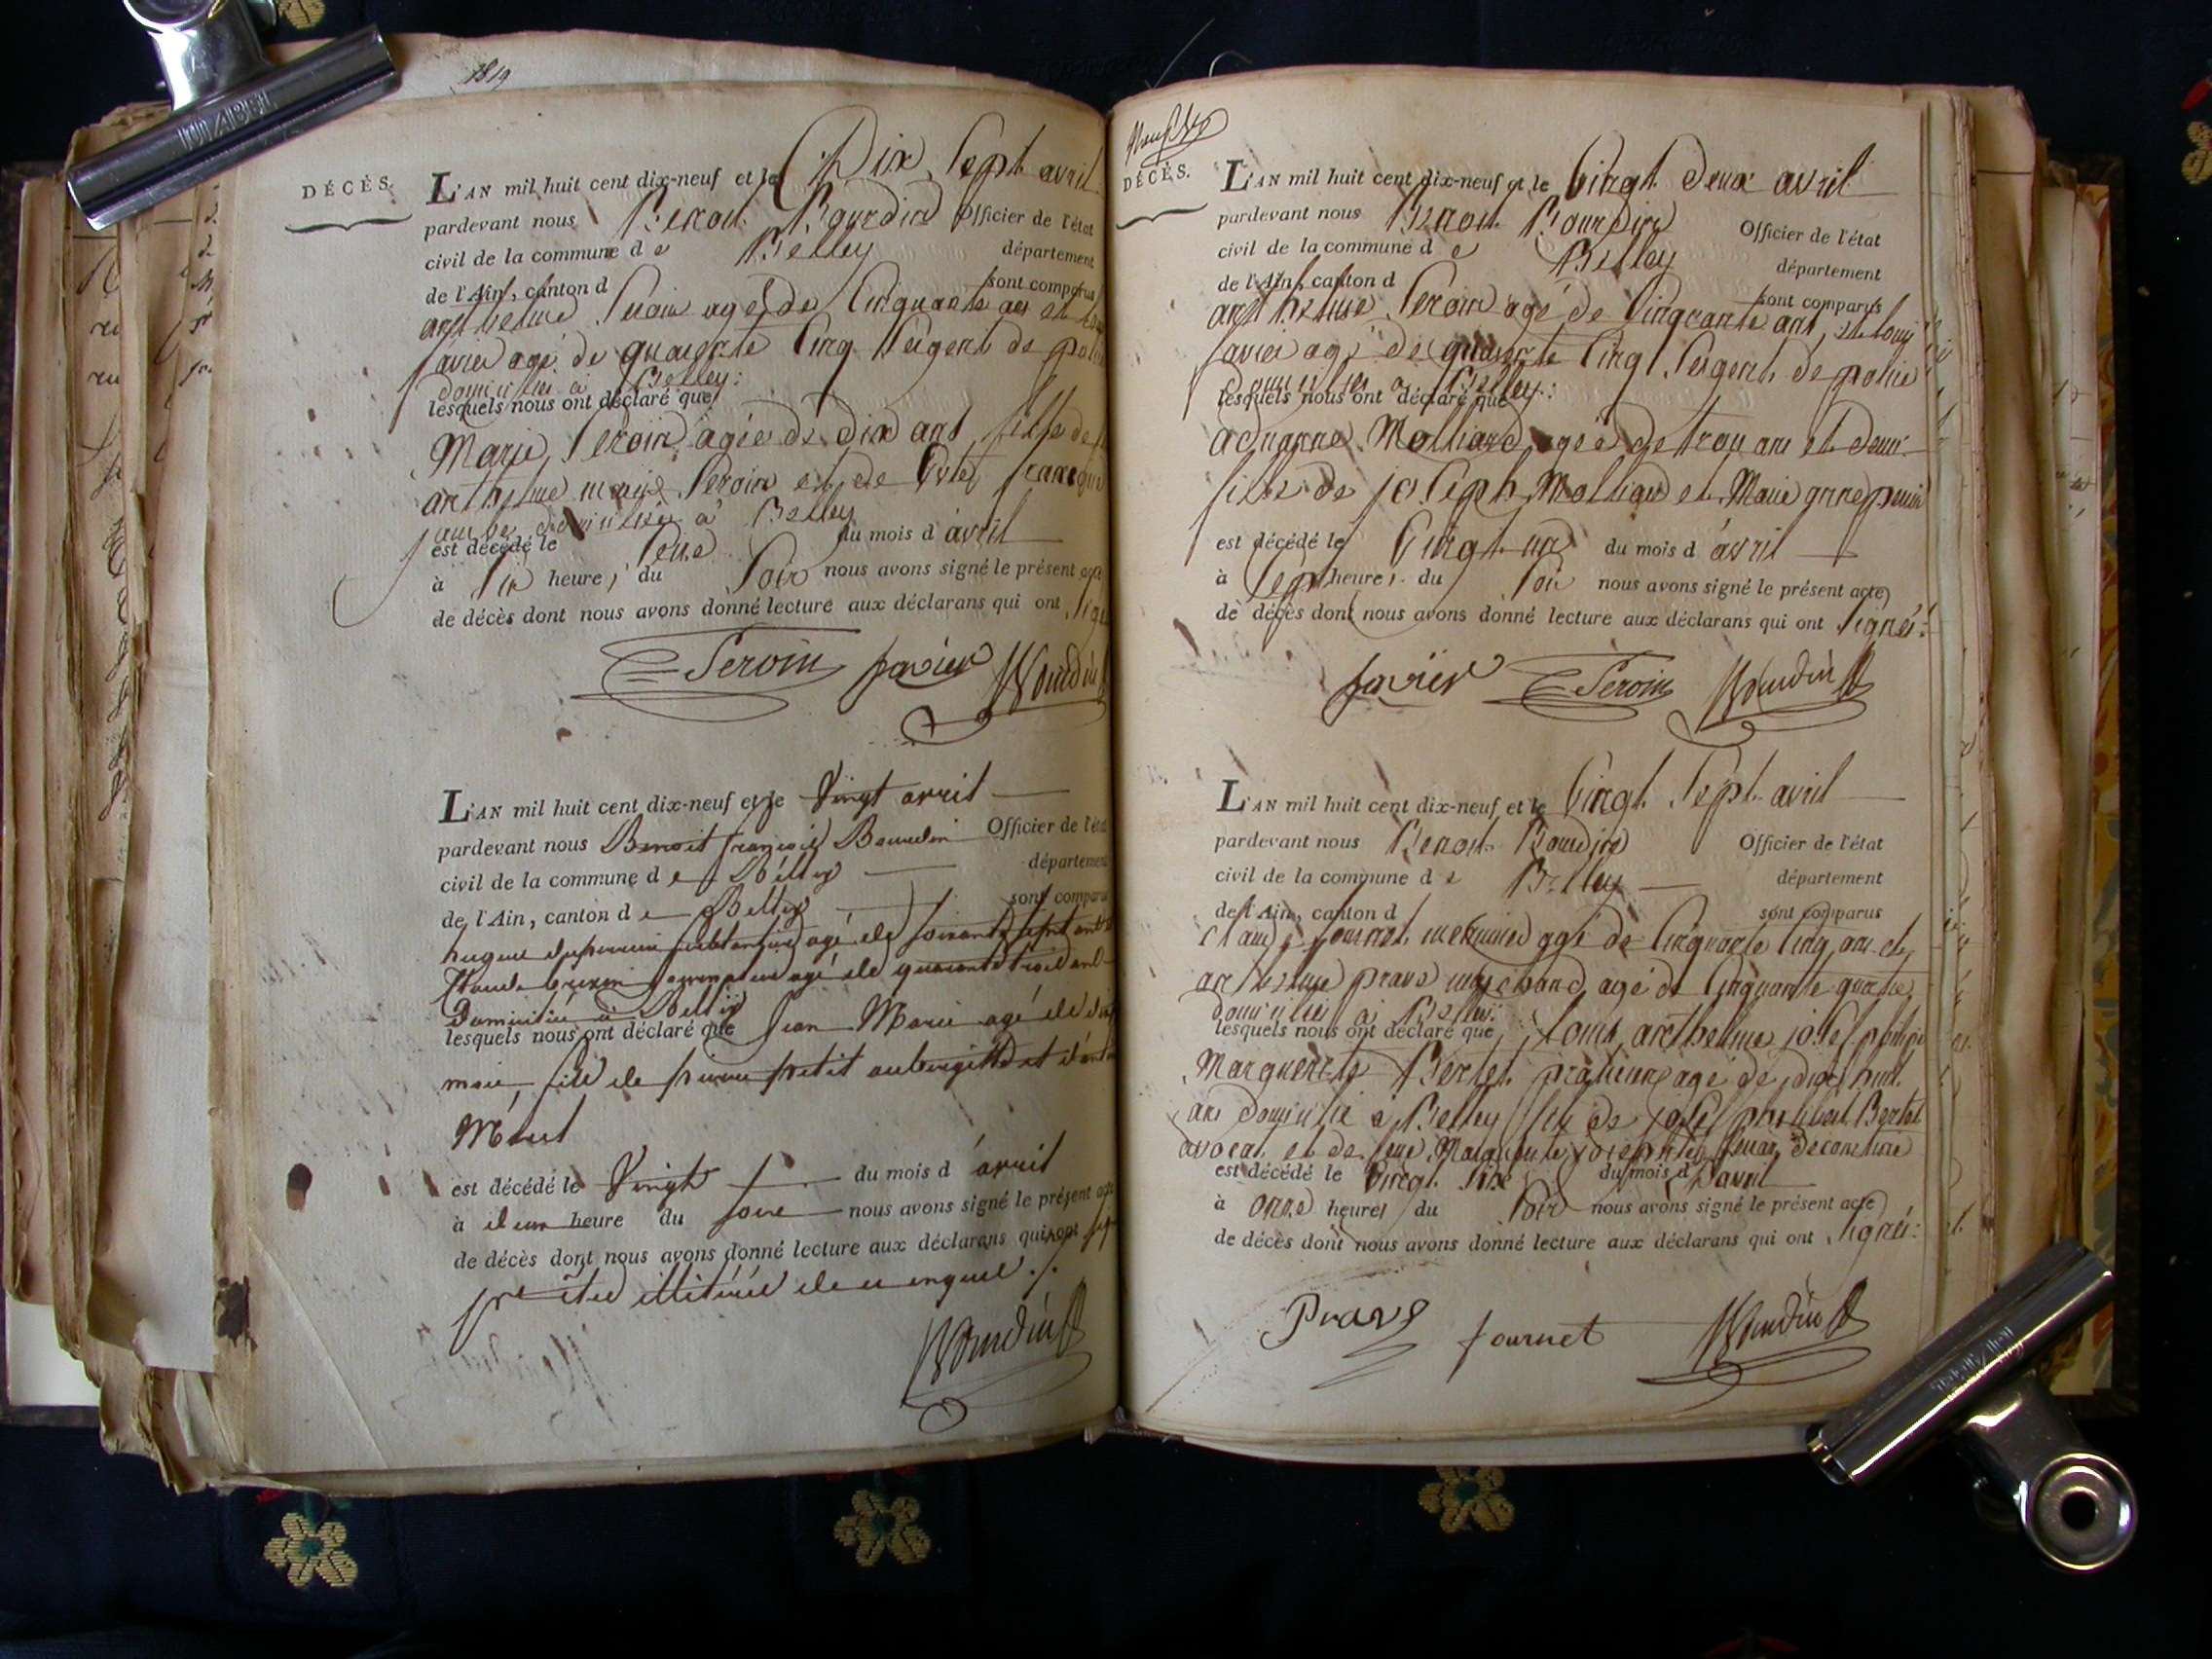 1819
DÉCÈS.
L'AN mil huit cent dix-neuf et le Dix Sept avril
pardevant nous Benoit Bourdin Officier de l'état
civil de la commune d e Belley département
de l'Ain, canton d sont comparus
anthelme Peroin agé de Cinquante ans et
favier agé de quarente Cinq Sergents de
domiciliés à Belley:
lesquels nous ont déclaré que
Marie Peroin agée de dix ans fille de
anthelme Peroin et de
domiciliée à Belley
est décédé le Seize du mois d avril
à Six heures du Soir nous avons signé le présent acte
de décès dont nous avons donné lecture aux déclarans qui ont
Peroin favier Bourdin
L'AN mil huit cent dix-neuf et le Vingt avril
pardevant nous Benoit françois Bourdin Officier de l'état
civil de la commune d e Belley département
de l'Ain, canton d e Belley sont comparus
agé de soixante sept ans
agé de quarante trois ans
Domiciliés à Belley
lesquels nous ont déclaré que Jean Marie agé de dix
mois, fils de pierre petit aubergiste et
est décédé le Vingt du mois d avril
à deux heure du soire nous avons signé le présent acte
de décès dont nous avons donné lecture aux déclarans qui ont
illitérés de enquis
Bourdin
DÉCÈS.
L'AN mil huit cent dix-neuf et le Vingt Deux avril
pardevant nous Benoit Bourdin Officier de l'état
civil de la commune d e Belley département
de l'Ain, canton d sont comparus
anthelme Peroin agé de Cinquante ans, et louis
favier agé de quarente Cinq Sergents de police
Domiciliés à Belley:
lesquels nous ont déclaré que
Molliard agée de trois ans et demi
fille de joseph Molliard et Marie anne
est décédé le Vingt un du mois d avril
à Sept heures du Soir nous avons signé le présent acte
de décès dont nous avons donné lecture aux déclarans qui ont Signés:
favier Peroin Bourdin
L'AN mil huit cent dix-neuf et le Vingt Sept avril
pardevant nous Benoit Bourdin Officier de l'état
civil de la commune d e Belley département
de l'Ain, canton d sont comparus
Claude fournet menuisier agé de Cinquante Cinq ans et
anthelme prave marchand agé de Cinquante quatre
domiciliés à Belley:
lesquels nous ont déclaré que Louis anthelme josef
Marguerite Bertet praticien agé de dix huit
ans domicilié à Belley fils de josef philibert Bertet
avocat et de feue Marguerite
est décédé le Vingt Six du mois d avril
à onze heures du Soir nous avons signé le présent acte
de décès dont nous avons donné lecture aux déclarans qui ont Signés:
Prave fournet Bourdin